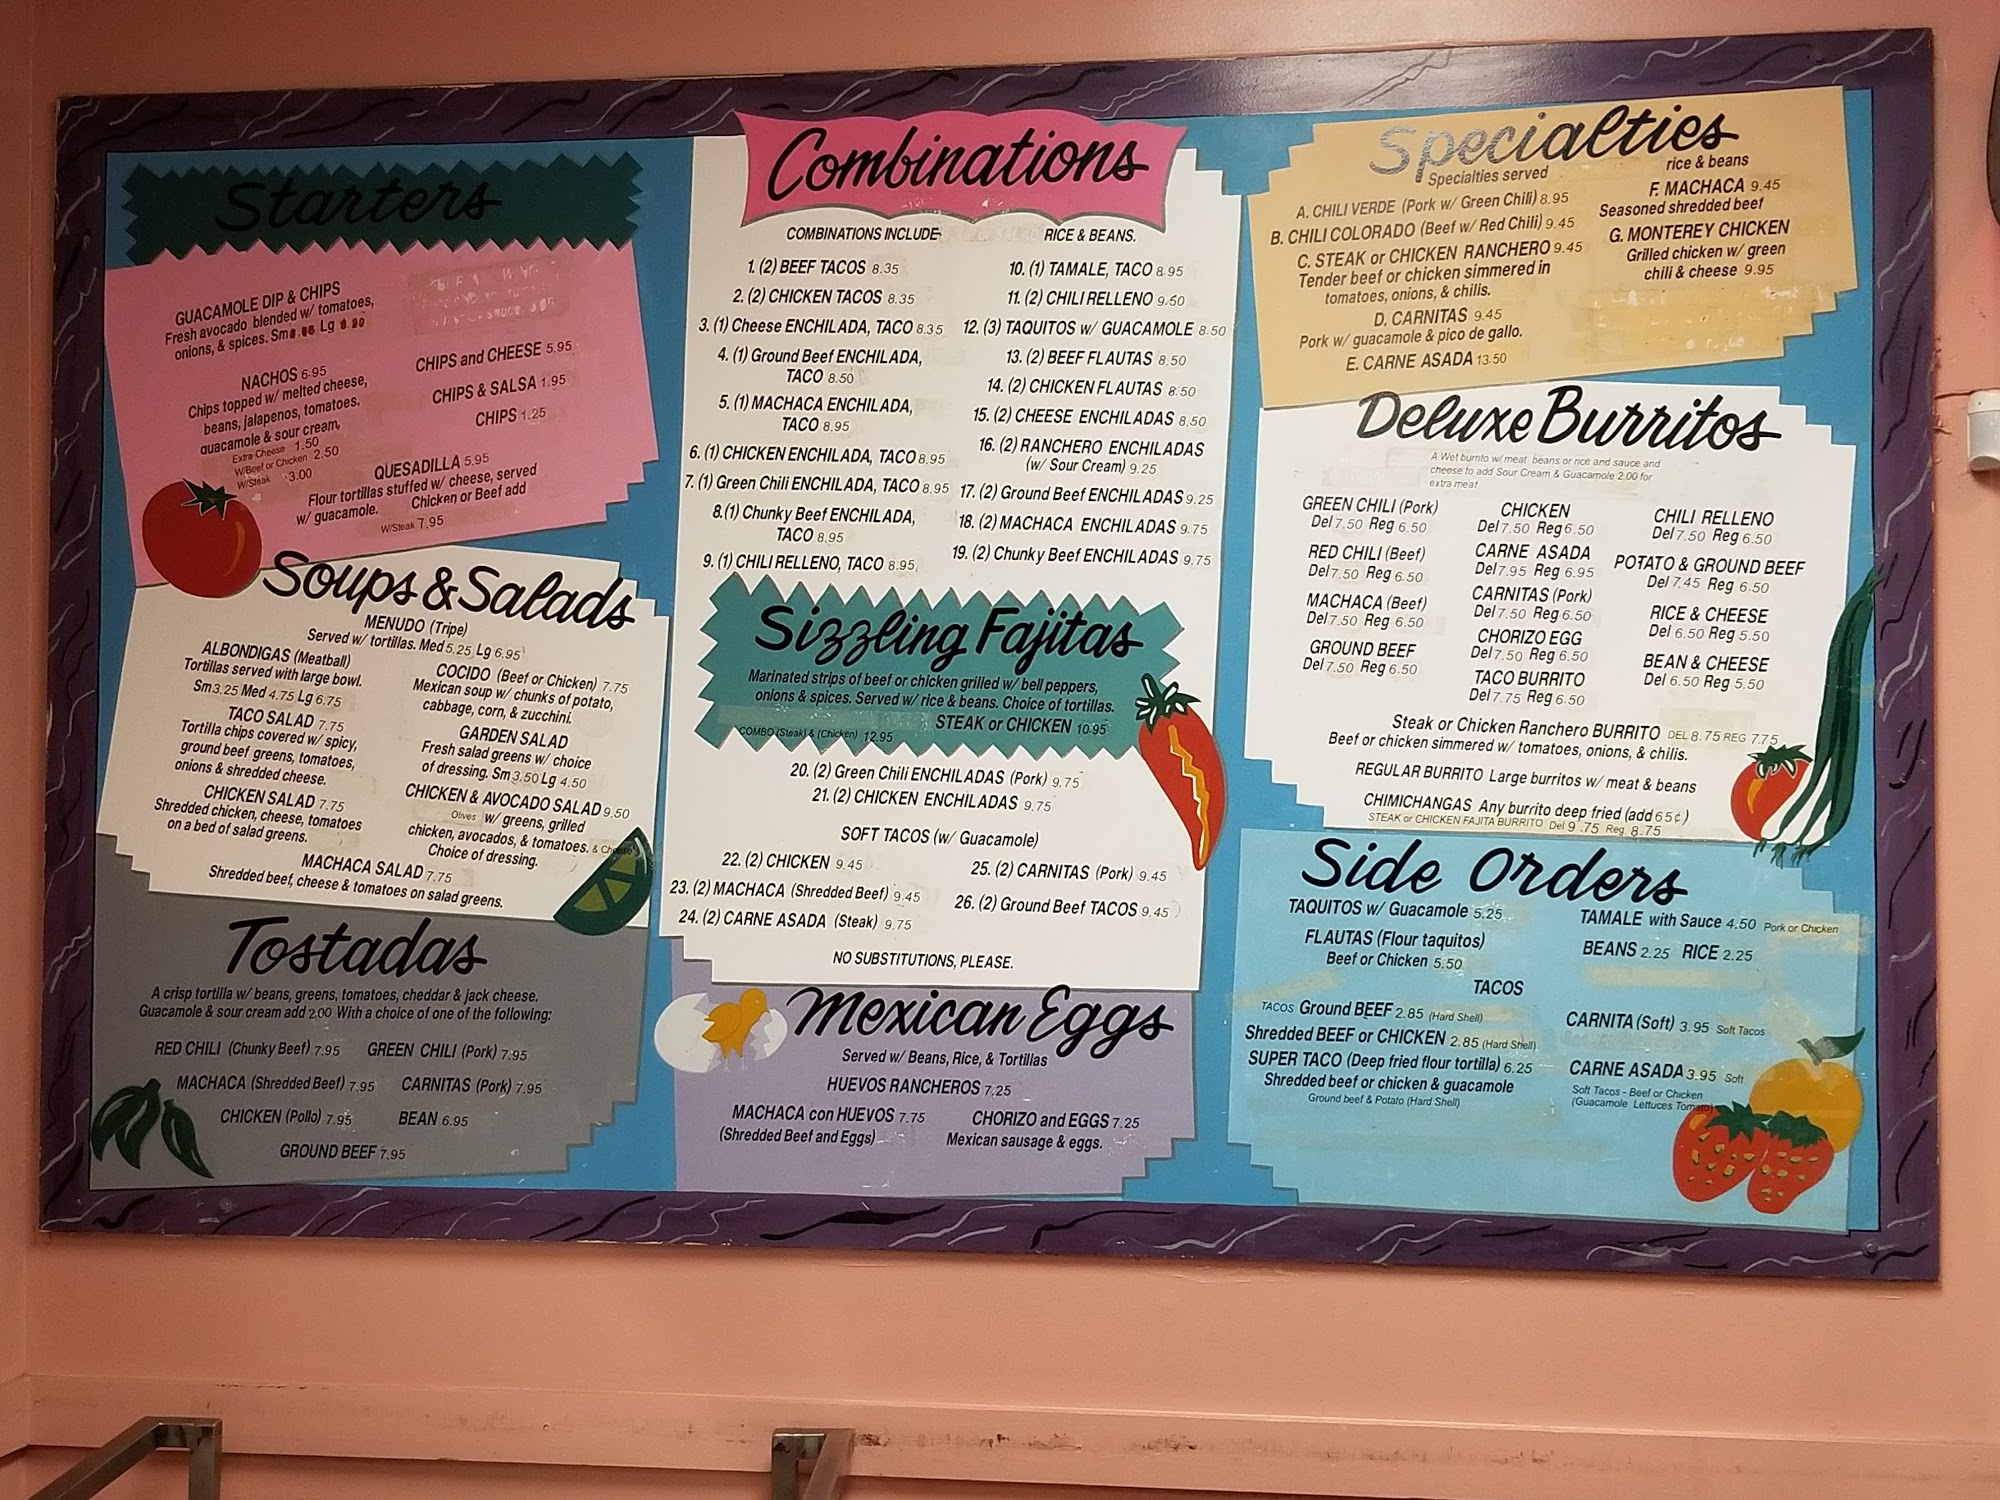 Starters
GUACAMOLE DIP & CHIPS
Fresh avocado blended w/ tomatoes,
onions, & spices. Sm Lg
NACHOS 6.95
Chips topped w/ melted cheese,
beans, jalapenos, tomatoes.
guacamole & sour cream,
Extra Cheese 1.50
W/Beef or Chicken 2.50
W/Steak 3.00
CHIPS and CHEESE 5.95
CHIPS & SALSA 1.95
CHIPS 1.25
QUESADILLA 5.95
Flour tortillas stuffed w/ cheese, served
w/ guacamole. Chicken or Beef add
W/Steak 7.95
Soups & Salads
MENUDO (Tripe)
Served w/ tortillas. Med 5.25 Lg 6.95
ALBONDIGAS (Meatball)
Tortillas served with large bowl.
Sm 3.25 Med 4.75 Lg 6.75
TACO SALAD 7.75
Tortilla chips covered w/ spicy,
ground beef greens, tomatoes,
onions & shredded cheese.
CHICKEN SALAD 7.75
Shredded chicken, cheese, tomatoes
on a bed of salad greens.
COCIDO (Beef or Chicken) 7.75
Mexican soup w/ chunks of potato,
cabbage, corn, & zucchini.
GARDEN SALAD
Fresh salad greens w/ choice
of dressing. Sm 3.50 Lg 4.50
CHICKEN & AVOCADO SALAD 9.50
Olives w/ greens, grilled
chicken, avocados, & tomatoes. & Cheese
Choice of dressing.
MACHACA SALAD 7.75
Shredded beef, cheese & tomatoes on salad greens.
Tostadas
A crisp tortilla w/ beans, greens, tomatoes, cheddar & jack cheese.
Guacamole & sour cream add 2.00 With a choice of one of the following:
RED CHILI (Chunky Beef) 7.95 GREEN CHILI (Pork) 7.95
MACHACA (Shredded Beef) 7.95 CARNITAS (Pork) 7.95
CHICKEN (Pollo) 7.95 BEAN 6.95
GROUND BEEF 7.95
Combinations
COMBINATIONS INCLUDE RICE & BEANS.
1. (2) BEEF TACOS 8.35
2. (2) CHICKEN TACOS 8.35
3. (1) Cheese ENCHILADA, TACO 8.35
4. (1) Ground Beef ENCHILADA,
TACO 8.50
5. (1) MACHACA ENCHILADA,
TACO 8.95
6. (1) CHICKEN ENCHILADA, TACO 8.95
7. (1) Green Chili ENCHILADA, TACO 8.95
8. (1) Chunky Beef ENCHILADA,
TACO 8.95
9. (1) CHILI RELLENO, TACO 8.95
10. (1) TAMALE, TACO 8.95
11. (2) CHILI RELLENO 9.50
12. (3) TAQUITOS w/ GUACAMOLE 8.50
13. (2) BEEF FLAUTAS 8.50
14. (2) CHICKEN FLAUTAS 8.50
15. (2) CHEESE ENCHILADAS 8.50
16. (2) RANCHERO ENCHILADAS
(w/ Sour Cream) 9.25
17. (2) Ground Beef ENCHILADAS 9.25
18. (2) MACHACA ENCHILADAS 9.75
19. (2) Chunky Beef ENCHILADAS 9.75
Sizzling Fajitas
Marinated strips of beef or chicken grilled w/ bell peppers,
onions & spices. Served w/ rice & beans. Choice of tortillas.
STEAK or CHICKEN 10.95
COMBO (Steak) & (Chicken) 12.95
20. (2) Green Chili ENCHILADAS (Pork) 9.75
21. (2) CHICKEN ENCHILADAS 9.75
SOFT TACOS (w/ Guacamole)
22. (2) CHICKEN 9.45
23. (2) MACHACA (Shredded Beef) 9.45
24. (2) CARNE ASADA (Steak) 9.75
25. (2) CARNITAS (Pork) 9.45
26. (2) Ground Beef TACOS 9.45
NO SUBSTITUTIONS, PLEASE.
Mexican Eggs
Served w/ Beans, Rice, & Tortillas
HUEVOS RANCHEROS 7.25
MACHACA con HUEVOS 7.75
(Shredded Beef and Eggs)
CHORIZO and EGGS 7.25
Mexican sausage & eggs.
Specialties
Specialties served rice & beans
A. CHILI VERDE (Pork w/ Green Chili) 8.95
B. CHILI COLORADO (Beef w/ Red Chili) 9.45
C. STEAK or CHICKEN RANCHERO 9.45
Tender beef or chicken simmered in
tomatoes, onions, & chilis.
D. CARNITAS 9.45
Pork w/ guacamole & pico de gallo.
E. CARNE ASADA 13.50
F. MACHACA 9.45
Seasoned shredded beef
G. MONTEREY CHICKEN
Grilled chicken w/ green
chili & cheese 9.95
Deluxe Burritos
A Wet burrito w/ meat beans or rice and sauce and
cheese to add Sour Cream & Guacamole 2.00 for
extra meat
GREEN CHILI (Pork)
Del 7.50 Reg 6.50
RED CHILI (Beef)
Del 7.50 Reg 6.50
MACHACA (Beef)
Del 7.50 Reg 6.50
GROUND BEEF
Del 7.50 Reg 6.50
CHICKEN
Del 7.50 Reg 6.50
CARNE ASADA
Del 7.95 Reg 6.95
CARNITAS (Pork)
Del 7.50 Reg 6.50
CHORIZO EGG
Del 7.50 Reg 6.50
TACO BURRITO
Del 7.75 Reg 6.50
CHILI RELLENO
Del 7.50 Reg 6.50
POTATO & GROUND BEEF
Del 7.45 Reg 6.50
RICE & CHEESE
Del 6.50 Reg 5.50
BEAN & CHEESE
Del 6.50 Reg 5.50
Steak or Chicken Ranchero BURRITO DEL 8.75 REG 7.75
Beef or chicken simmered w/ tomatoes, onions, & chilis.
REGULAR BURRITO Large burritos w/ meat & beans
CHIMICHANGAS Any burrito deep fried (add 65¢)
STEAK or CHICKEN FAJITA BURRITO Del 9.75 Reg. 8.75
Side Orders
TAQUITOS w/ Guacamole 5.25
FLAUTAS (Flour taquitos)
Beef or Chicken 5.50
TAMALE with Sauce 4.50 Pork or Chicken
BEANS 2.25 RICE 2.25
TACOS
TACOS Ground BEEF 2.85 (Hard Shell)
Shredded BEEF or CHICKEN 2.85 (Hard Shell)
SUPER TACO (Deep fried flour tortilla) 6.25
Shredded beef or chicken & guacamole
Ground beef & Potato (Hard Shell)
CARNITA (Soft) 3.95 Soft Tacos
CARNE ASADA 3.95 Soft
Soft Tacos - Beef or Chicken
(Guacamole Lettuces Tomato)